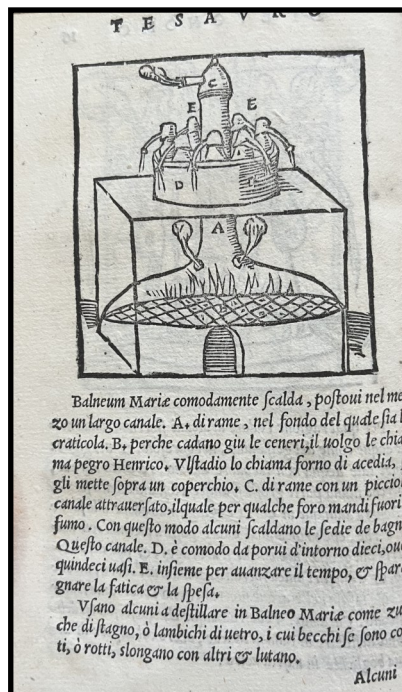 TESAVRO
C
E E
D
A
Balneum Mariæ comodamente ſcalda, poſtoui nel me
zo un largo canale. A. di rame, nel fondo del quale ſia
craticola. B. perche cadano giu le ceneri, il uolgo le chia
ma pegro Henrico. Vlſtadio lo chiama forno di acedia,
gli mette ſopra un coperchio. C. di rame con un piccio
canale attrauerſato, ilquale per qualche foro mandi fuori
fumo. Con queſto modo alcuni ſcaldano le ſedie de bagn
Queſto canale. D. è comodo da porui d'intorno dieci, oue
quindeci uaſi. E. inſieme per auanzare il tempo, & ſpar
gnare la fatica & la ſpeſa.
Vſano alcuni a deſtillare in Balneo Mariæ come zu
che di ſtagno, ò lambichi di uetro, i cui becchi ſe ſono co
ti, ò rotti, slongano con altri & lutano.
Alcuni